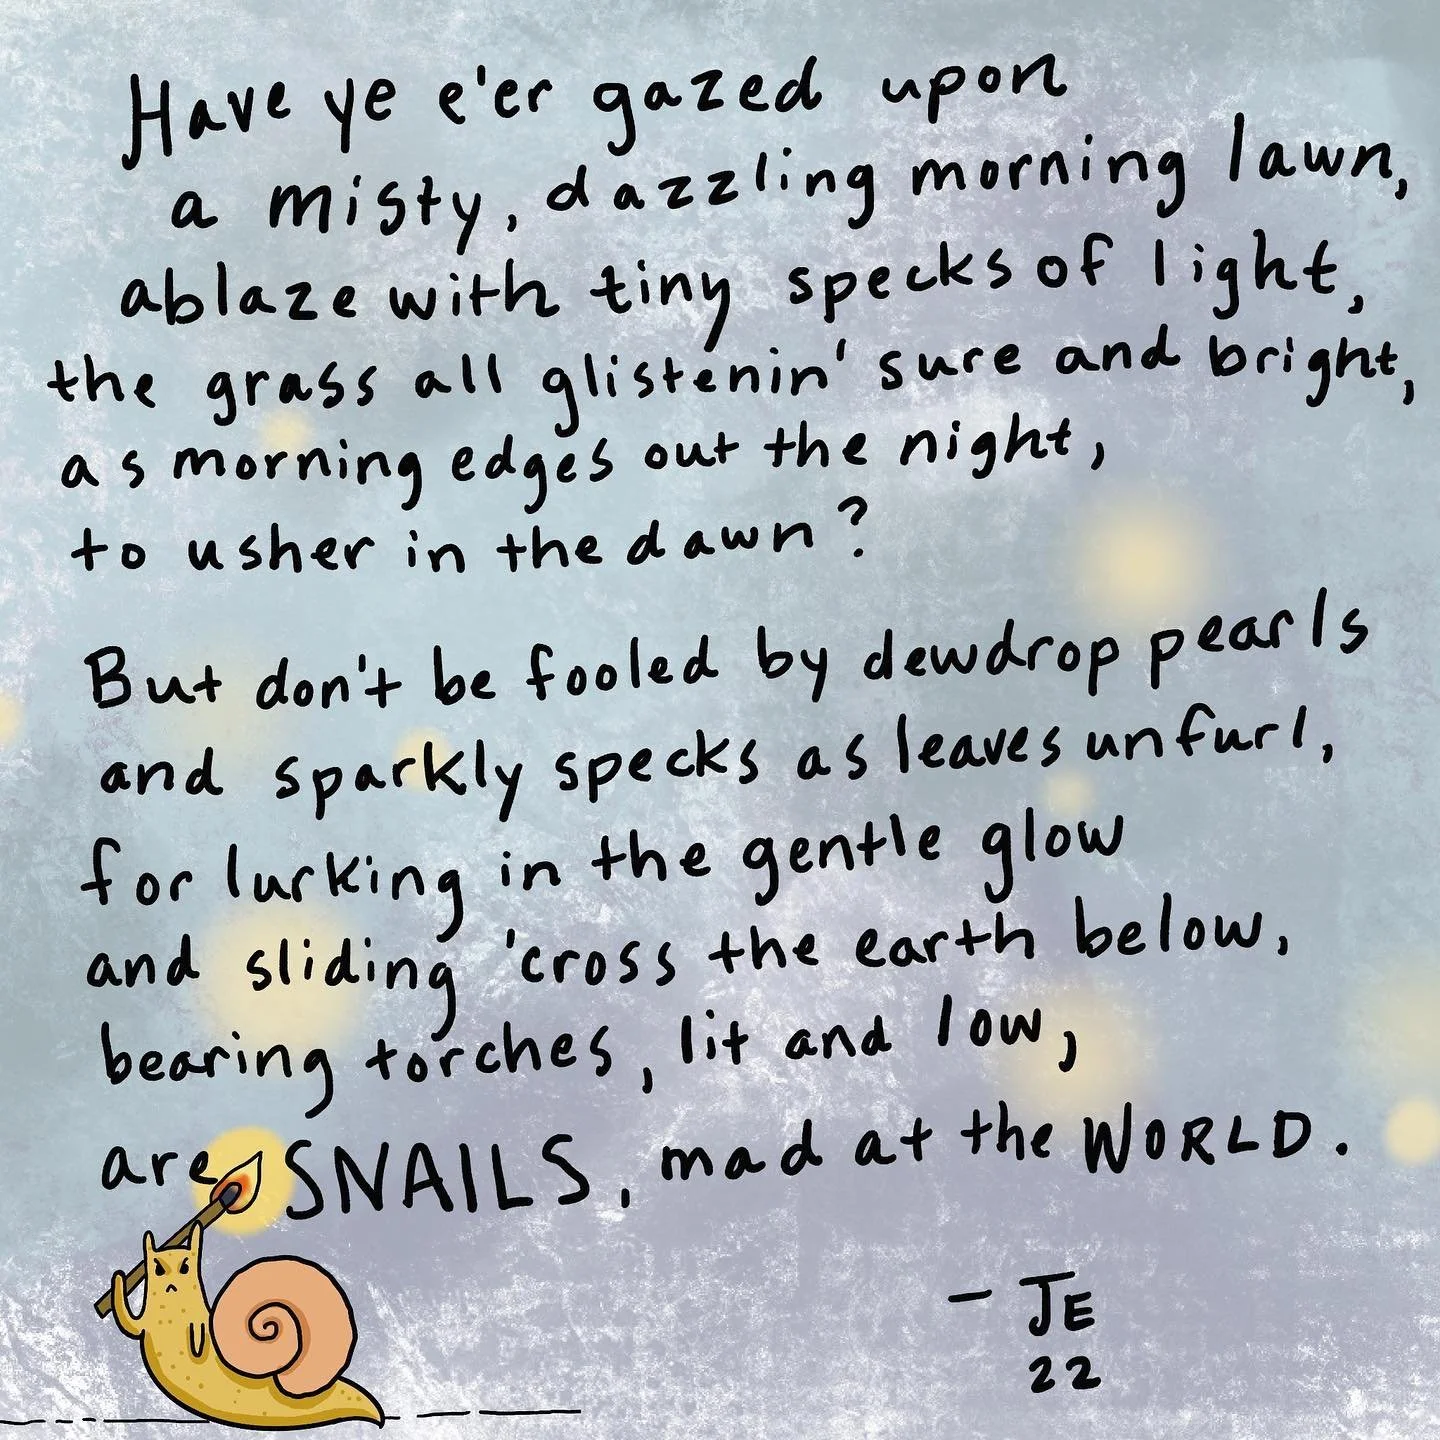 Have ye e'er gazed upon
a misty, dazzling morning lawn,
ablaze with tiny specks of light,
the grass all glistenin' sure and bright,
as morning edges out the night,
to usher in the dawn?
But don't be fooled by dewdrop pearls
and sparkly specks as leaves unfurl,
for lurking in the gentle glow
and sliding 'cross the earth below,
bearing torches, lit and low,
are SNAILS, mad at the WORLD.
- JE
22